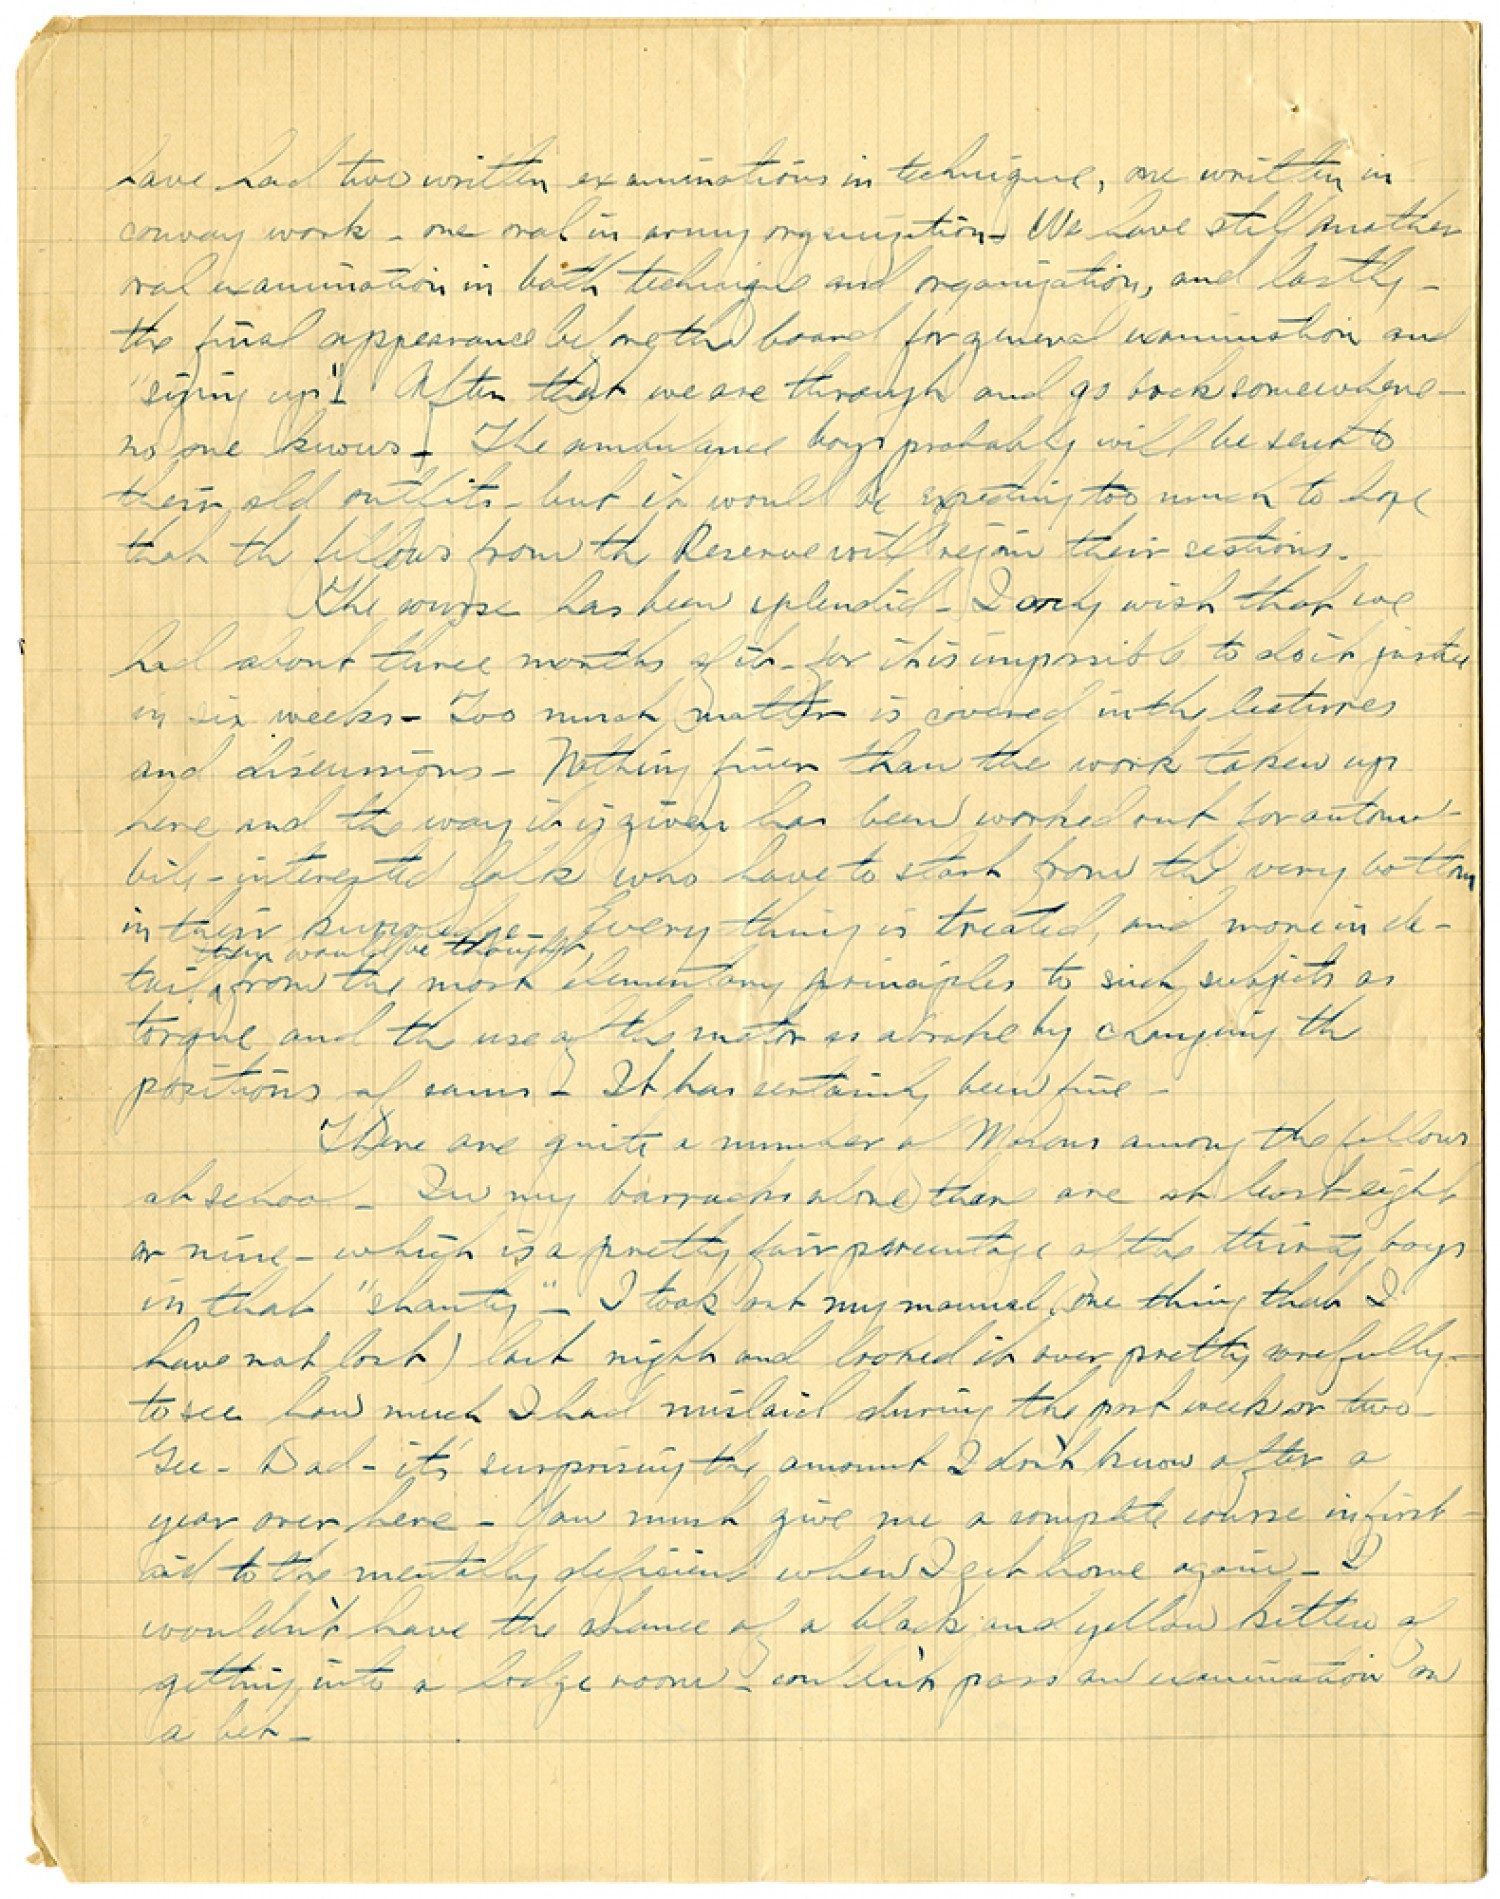 have had two written examinations in technique, one written in
convoy work - one oral in army organization - We have still another
oral examination in both technique and organization, and lastly -
the final appearance before the board for general examination and
"sizing up"! After that we are through and go back somewhere -
no one knows - The ambulance boys probably will be sent to
their old outfits - but it would be expecting too much to hope
that the fellows from the Reserve will rejoin their sections.
The course has been splendid - I only wish that we
had about three months of it - for it is impossible to do it justice
in six weeks - Too much matter is covered in the lectures
and discussions - Nothing finer than the work taken up
here and the way it is given has been worked out for automo-
bile-interested folk who have to start from the very bottom
in their knowledge - Every thing is treated, and more in de-
than would be thought,
tail from the most elementary principles to such subjects as
torque and the use of the motor as a brake by changing the
positions of cams - It has certainly been fine -
There are quite a number of Masons among the fellows
at school - In my barracks alone there are at least eight
or nine - which is a pretty fair percentage of the thirty boys
in that "shanty" - I took out my manual (one thing that I
have not lost) last night and looked it over pretty carefully -
to see how much I had mislaid during the past week or two -
Gee - Dad - it's surprising the amount I don't know after a
year over here - You must give me a complete course in first-
aid to the mentally deficient when I get home again - I
wouldn't have the chance of a black and yellow kitten of
getting into a lodge room - couldn't pass an examination on
a bet -